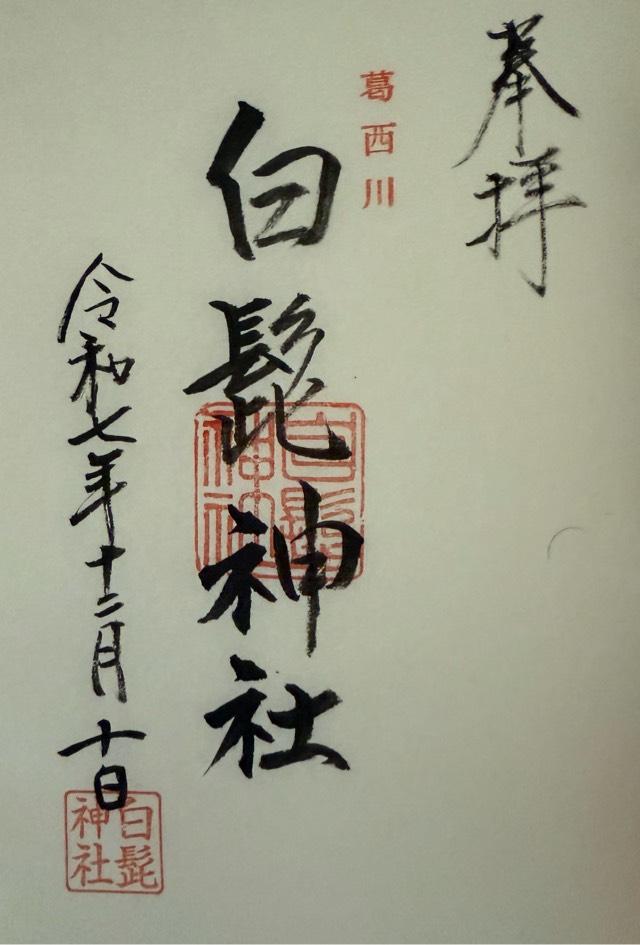 奉拝
葛西川
白髭神社
白髭神社
令和七年十二月十日
白髭神社